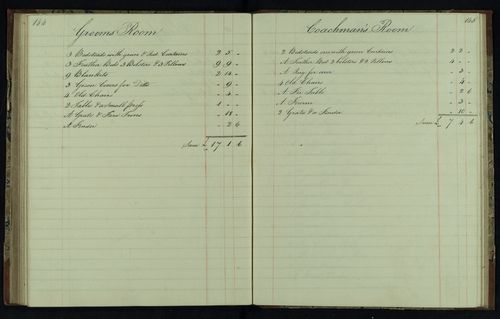 144
Grooms Room
3 Bedsteads with green & Hat Curtains 2 5 -
3 Feather Beds 3 Bolsters & 3 Pillows 9 9 -
9 Blankets 2 14 -
3 Green Covers for Ditto - 9 -
4 Old Chairs - 4 -
2 Tables & a Small press 1 - -
A Grate & Fire Irons - 18 -
A Fender - 2 6
Sum £ 17 1 6
145
Coachman's Room
2 Bedsteads one with green Curtains 2 2 -
A Feather Bed 2 bolsters & 2 Pillows 4 - -
A Rug for one - 3 -
4 Old Chairs - 4 -
A Fir Table - 2 6
A Form - 3 -
2 Grates & a Fender - 10 -
Sum £ 7 4 6